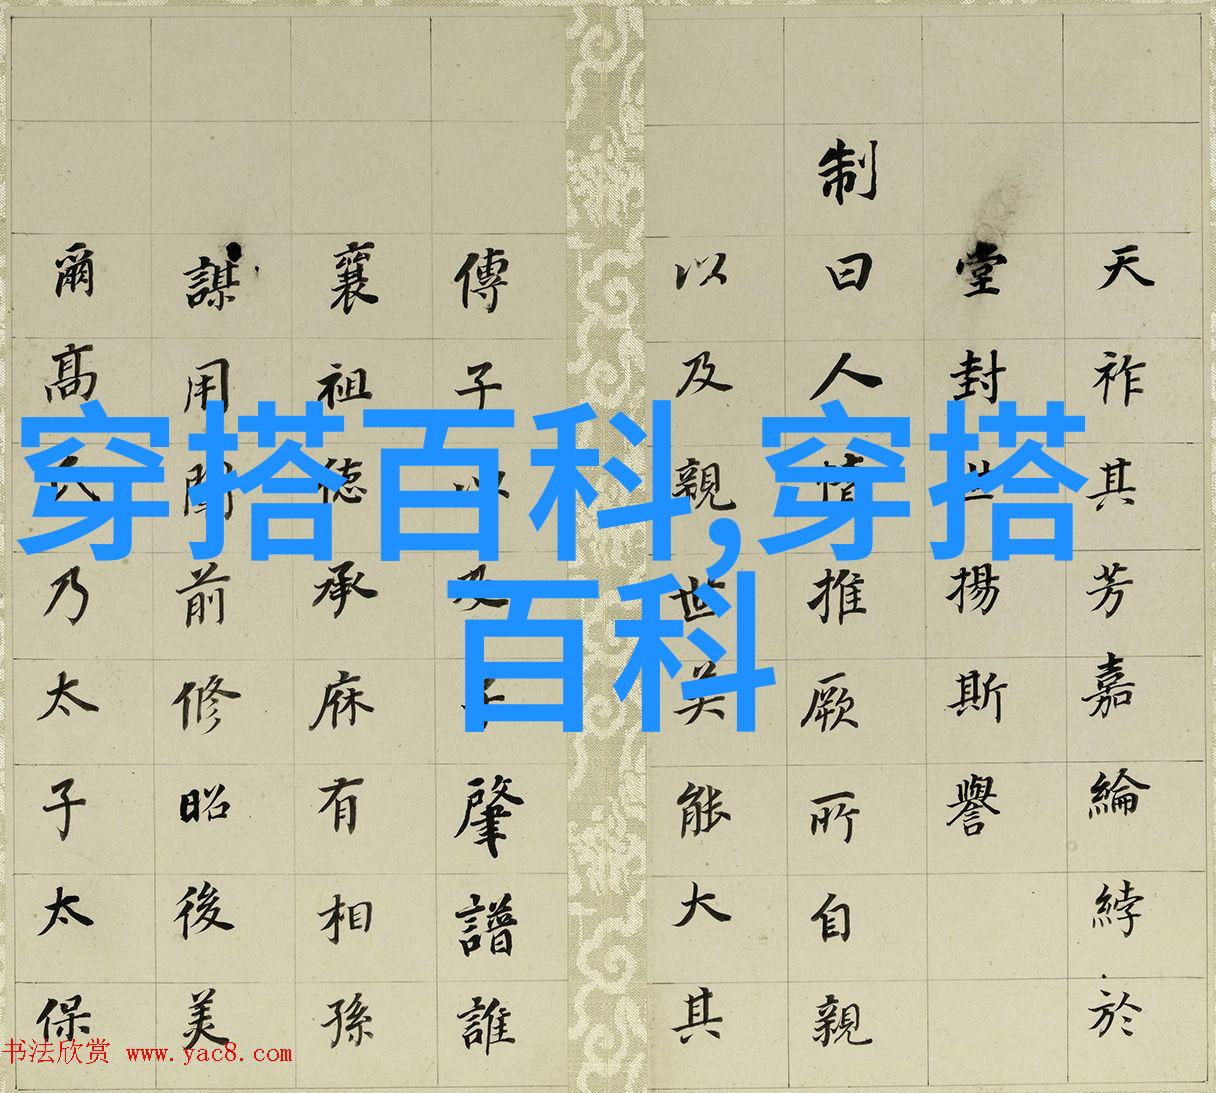 天祚其芳嘉綸綍於
堂封世揚斯譽
制曰人情推厥所自親
以及親世美能大其
傳子以及肇譜誰
襄祖德承庥有相孫
謀用前修昭後美
爾高氏乃太子太保
穿搭百科,穿搭
百科
书法欣赏 www.yac8.com